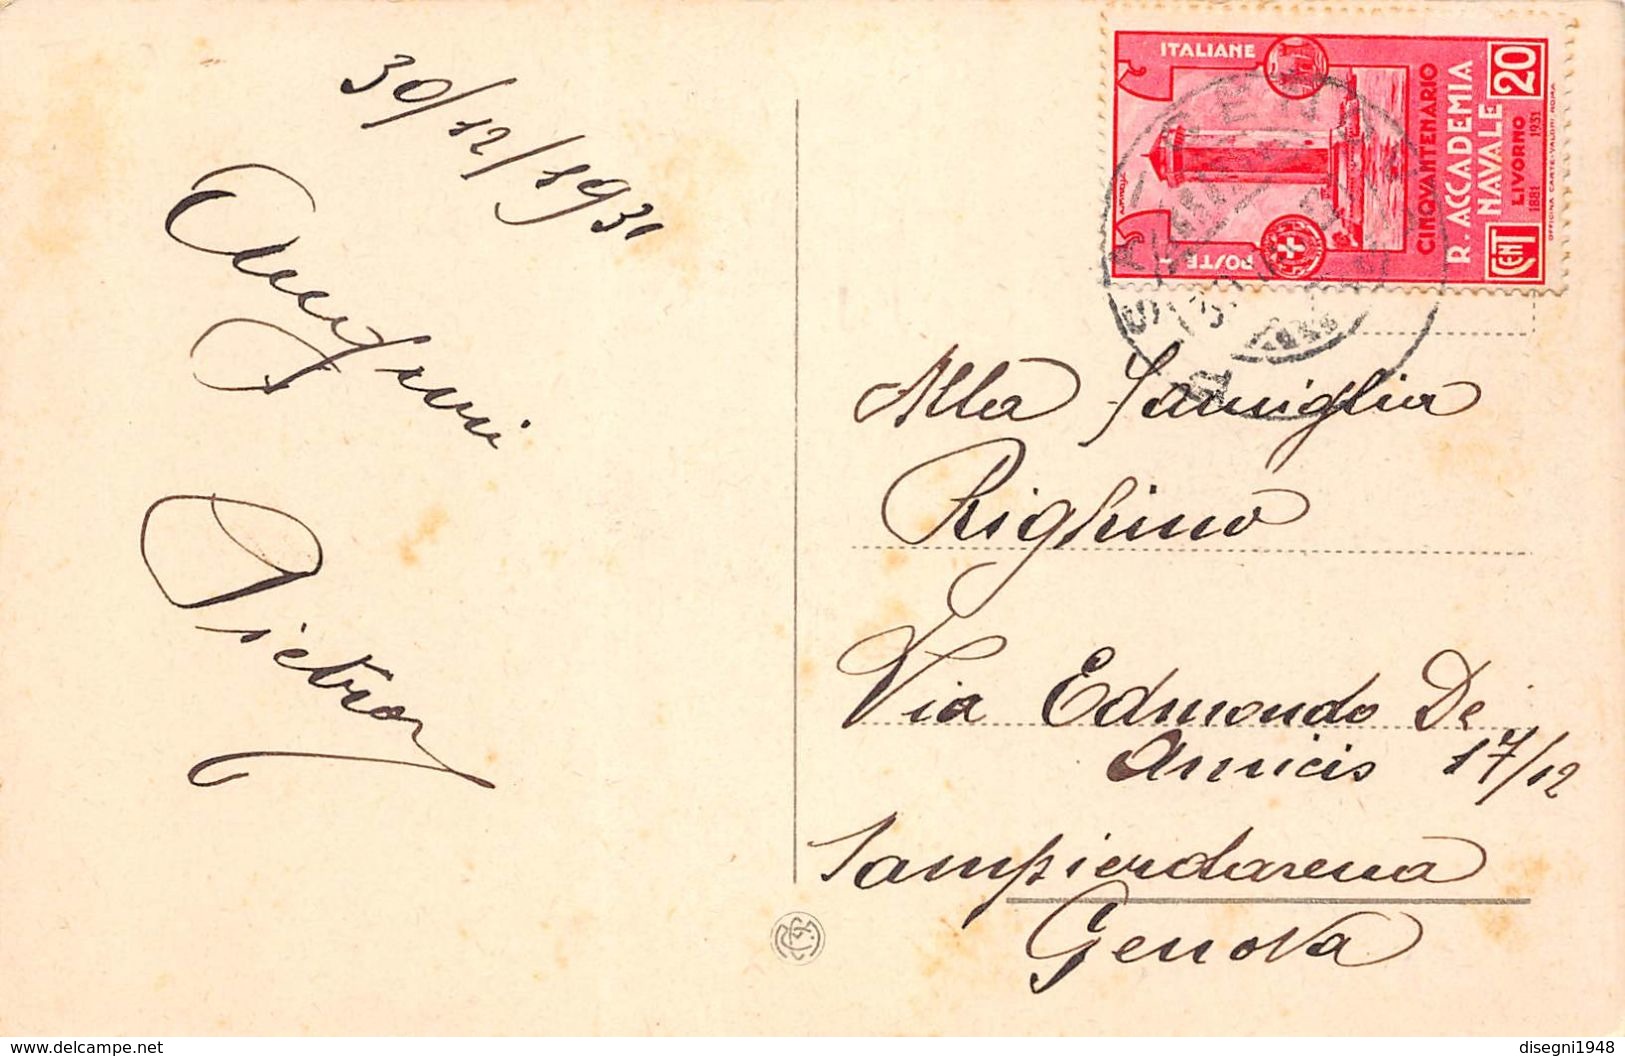 30/12/1931
Auguroni
Pietro
ITALIANE
POSTE
CINQVANTENARIO
R. ACCADEMIA
NAVALE
LIVORNO
1881 1931
CENT 20
OFFICINA CARTE-VALORI ROMA
Alla Famiglia
Righino
Via Edmondo De
Amicis 17/12
Sampierdarena
Genova
www.delcampe.net
disegni1948